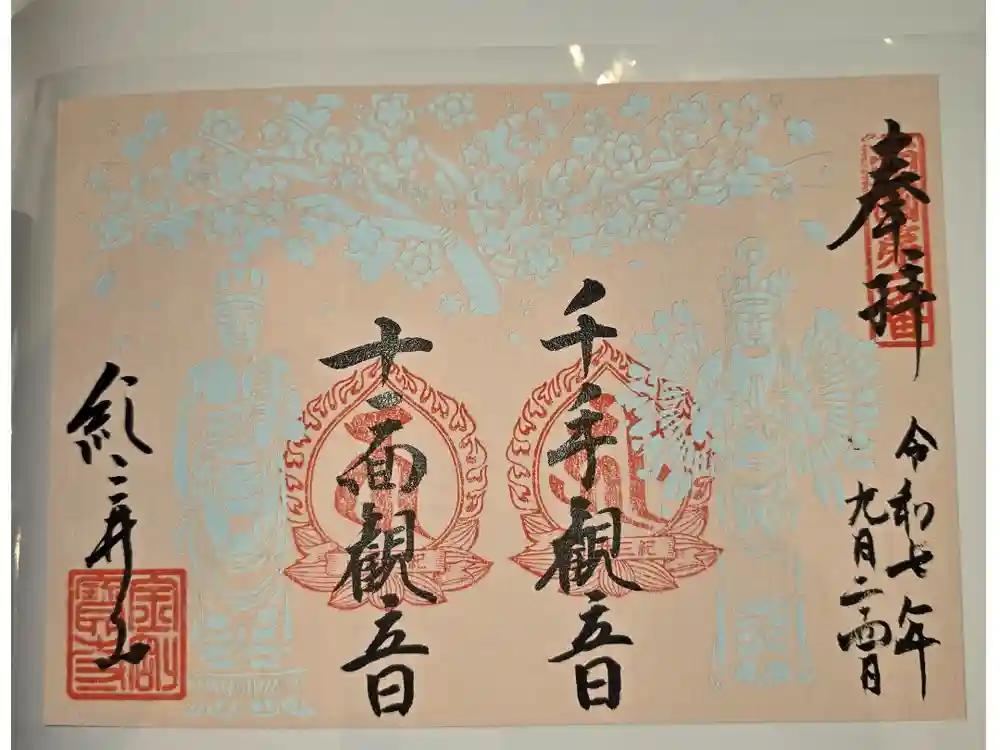 奉拝
西國第二番
令和七年
九月二十四日
千手観音
十一面観音
紀三井山
金剛寶寺